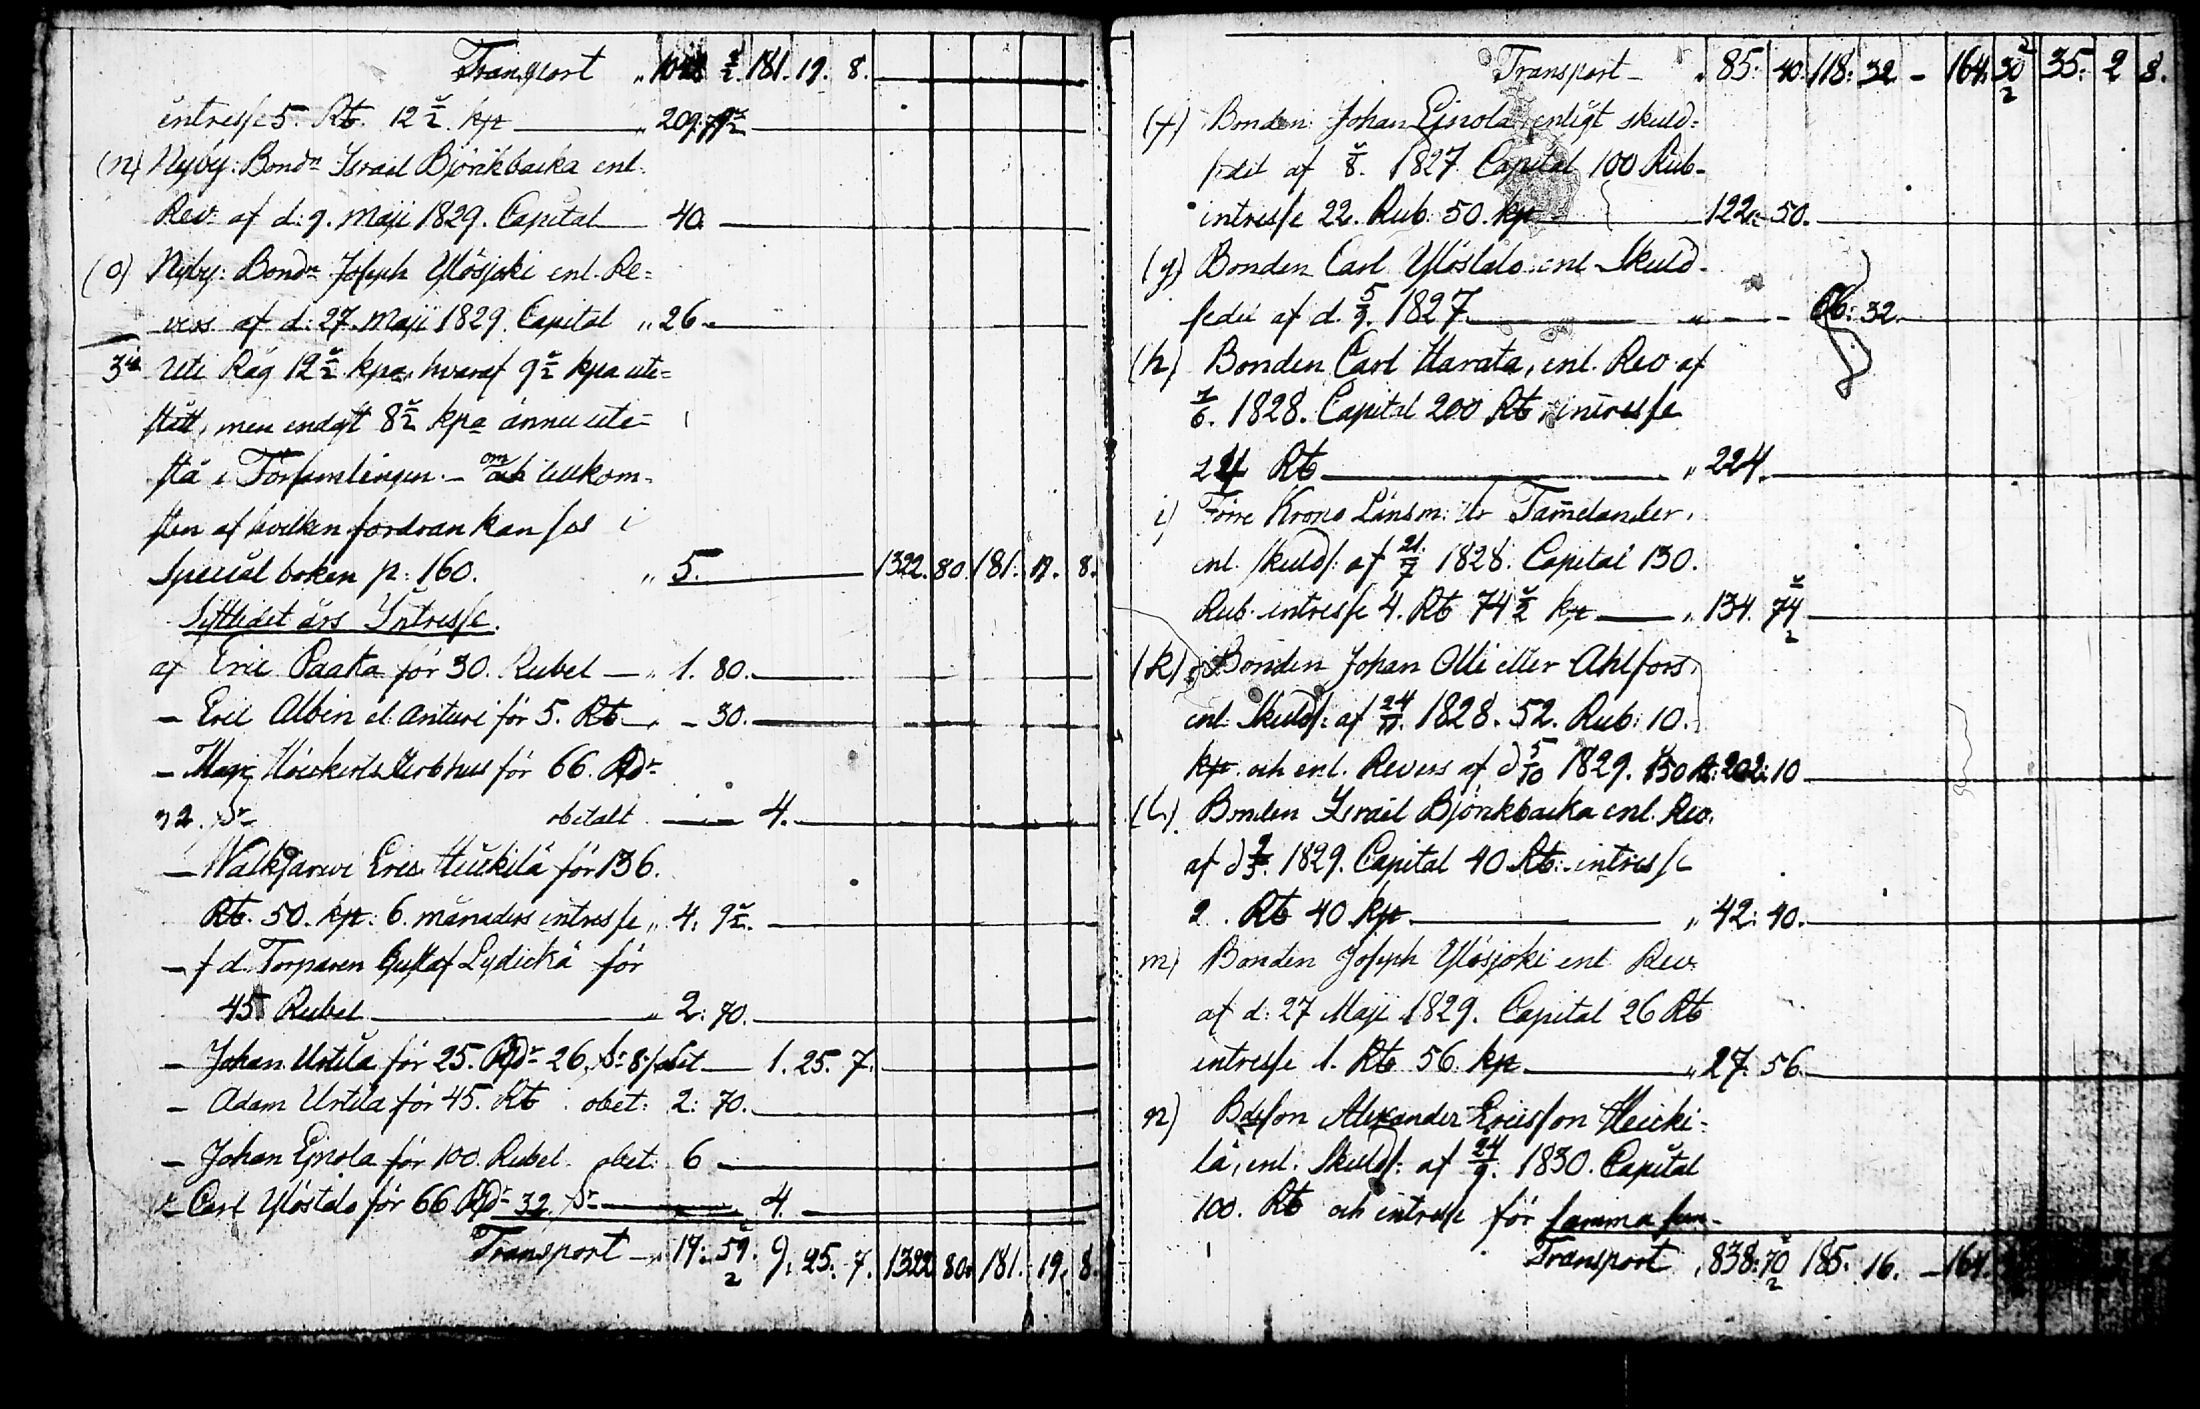 Transport " 1048 ½. 181. 19. 8.
intresse 5. Rb. 12½ kp " 209.79½
(n) Nyby: Bondn Israel Björkbacka enl.
Rev: af d: 9. Maji 1829. Capital 40.
(o) Nyby: Bondn Joseph Ylösjoki enl. Re=
vers af d: 27. Maji 1829. Capital " 26.
3je Uti Råg 12½ kpa, hvaraf 9½ kpa ute=
stått, men endast 8½ kpa ännu ute=
stå i Församlingen. – om tillkom-
sten af hvilken fordran kan ses i
Special boken p: 160. " 5. 1322. 80. 181. 19. 8.
Sistledet års Intresse.
af Eric Paaka för 30. Rubel – " 1. 80.
– Eric Albin el: Anturi för 5. Rb – " – 30.
– Maj: Höckerts Sterbhus för 66. Rdr
32. Sr obetalt. – 4.
– Walkjarwi Erics Heickilä för 136.
Rb. 50. kp: 6. månaders intresse " 4. 9½.
– f d. Torparen Gustaf Lydickä för
45 Rubel " 2: 70.
– Johan Urtila för 25. Rdr 26. Sr 8 1. 25. 7.
– Adam Urtila för 45. Rb obet: 2: 70.
– Johan Ejnola för 100. Rubel. obet: 6
– Carl Ylöstalo för 66 Rdr 32. Sr 4.
Transport – " 17: 59½. 9. 25. 7. 1322 80. 181. 19. 8.
Transport – " 85: 40. 118: 32 – 164: 30½ 35: 2 8.
(f) Bonden Johan Ejnola enligt skuld=
sedel af 8. 1827. Capital 100 Rub-
intresse 22. Rub. 50. kp 122:–50.
(g) Bonden Carl Ylöstalo enl. Skuld-
sedel af d. 5/3. 1827. " – – 66: 32.
(h) Bonden Carl Harata, enl. Rev af
1/6. 1828. Capital 200 Rb intresse
24 Rb " 224.
i) Förre Krono Länsm: Hr Tamelander,
enl. Skulds: af 21/7 1828. Capital 130.
Rub. intresse 4. Rb 74½ kp " 134. 74½
(k) Bonden Johan Olli eller Ahlfors,
enl. Skulds: af 24/11. 1828. 52. Rub: 10.
kp. och enl. Revers af d 5/10 1829. 150 Rb: 202: 10
(l). Bonden Israel Björkbacka enl. Rev.
af d 9/5. 1829. Capital 40 Rb: intresse
2. Rb 40 kp " 42: 40.
m) Bonden Joseph Ylösjoki enl Rev:
af d: 27 Maji 1829. Capital 26 Rb
intresse 1. Rb 56. kp " 27. 56.
n) Bdeson Alexander Ericsson Heicki-
lä, enl. Skulds: af 24/9. 1830. Capital
100. Rb och intresse för samma sum-
Transport " 838: 70½ 185. 16. – 164.